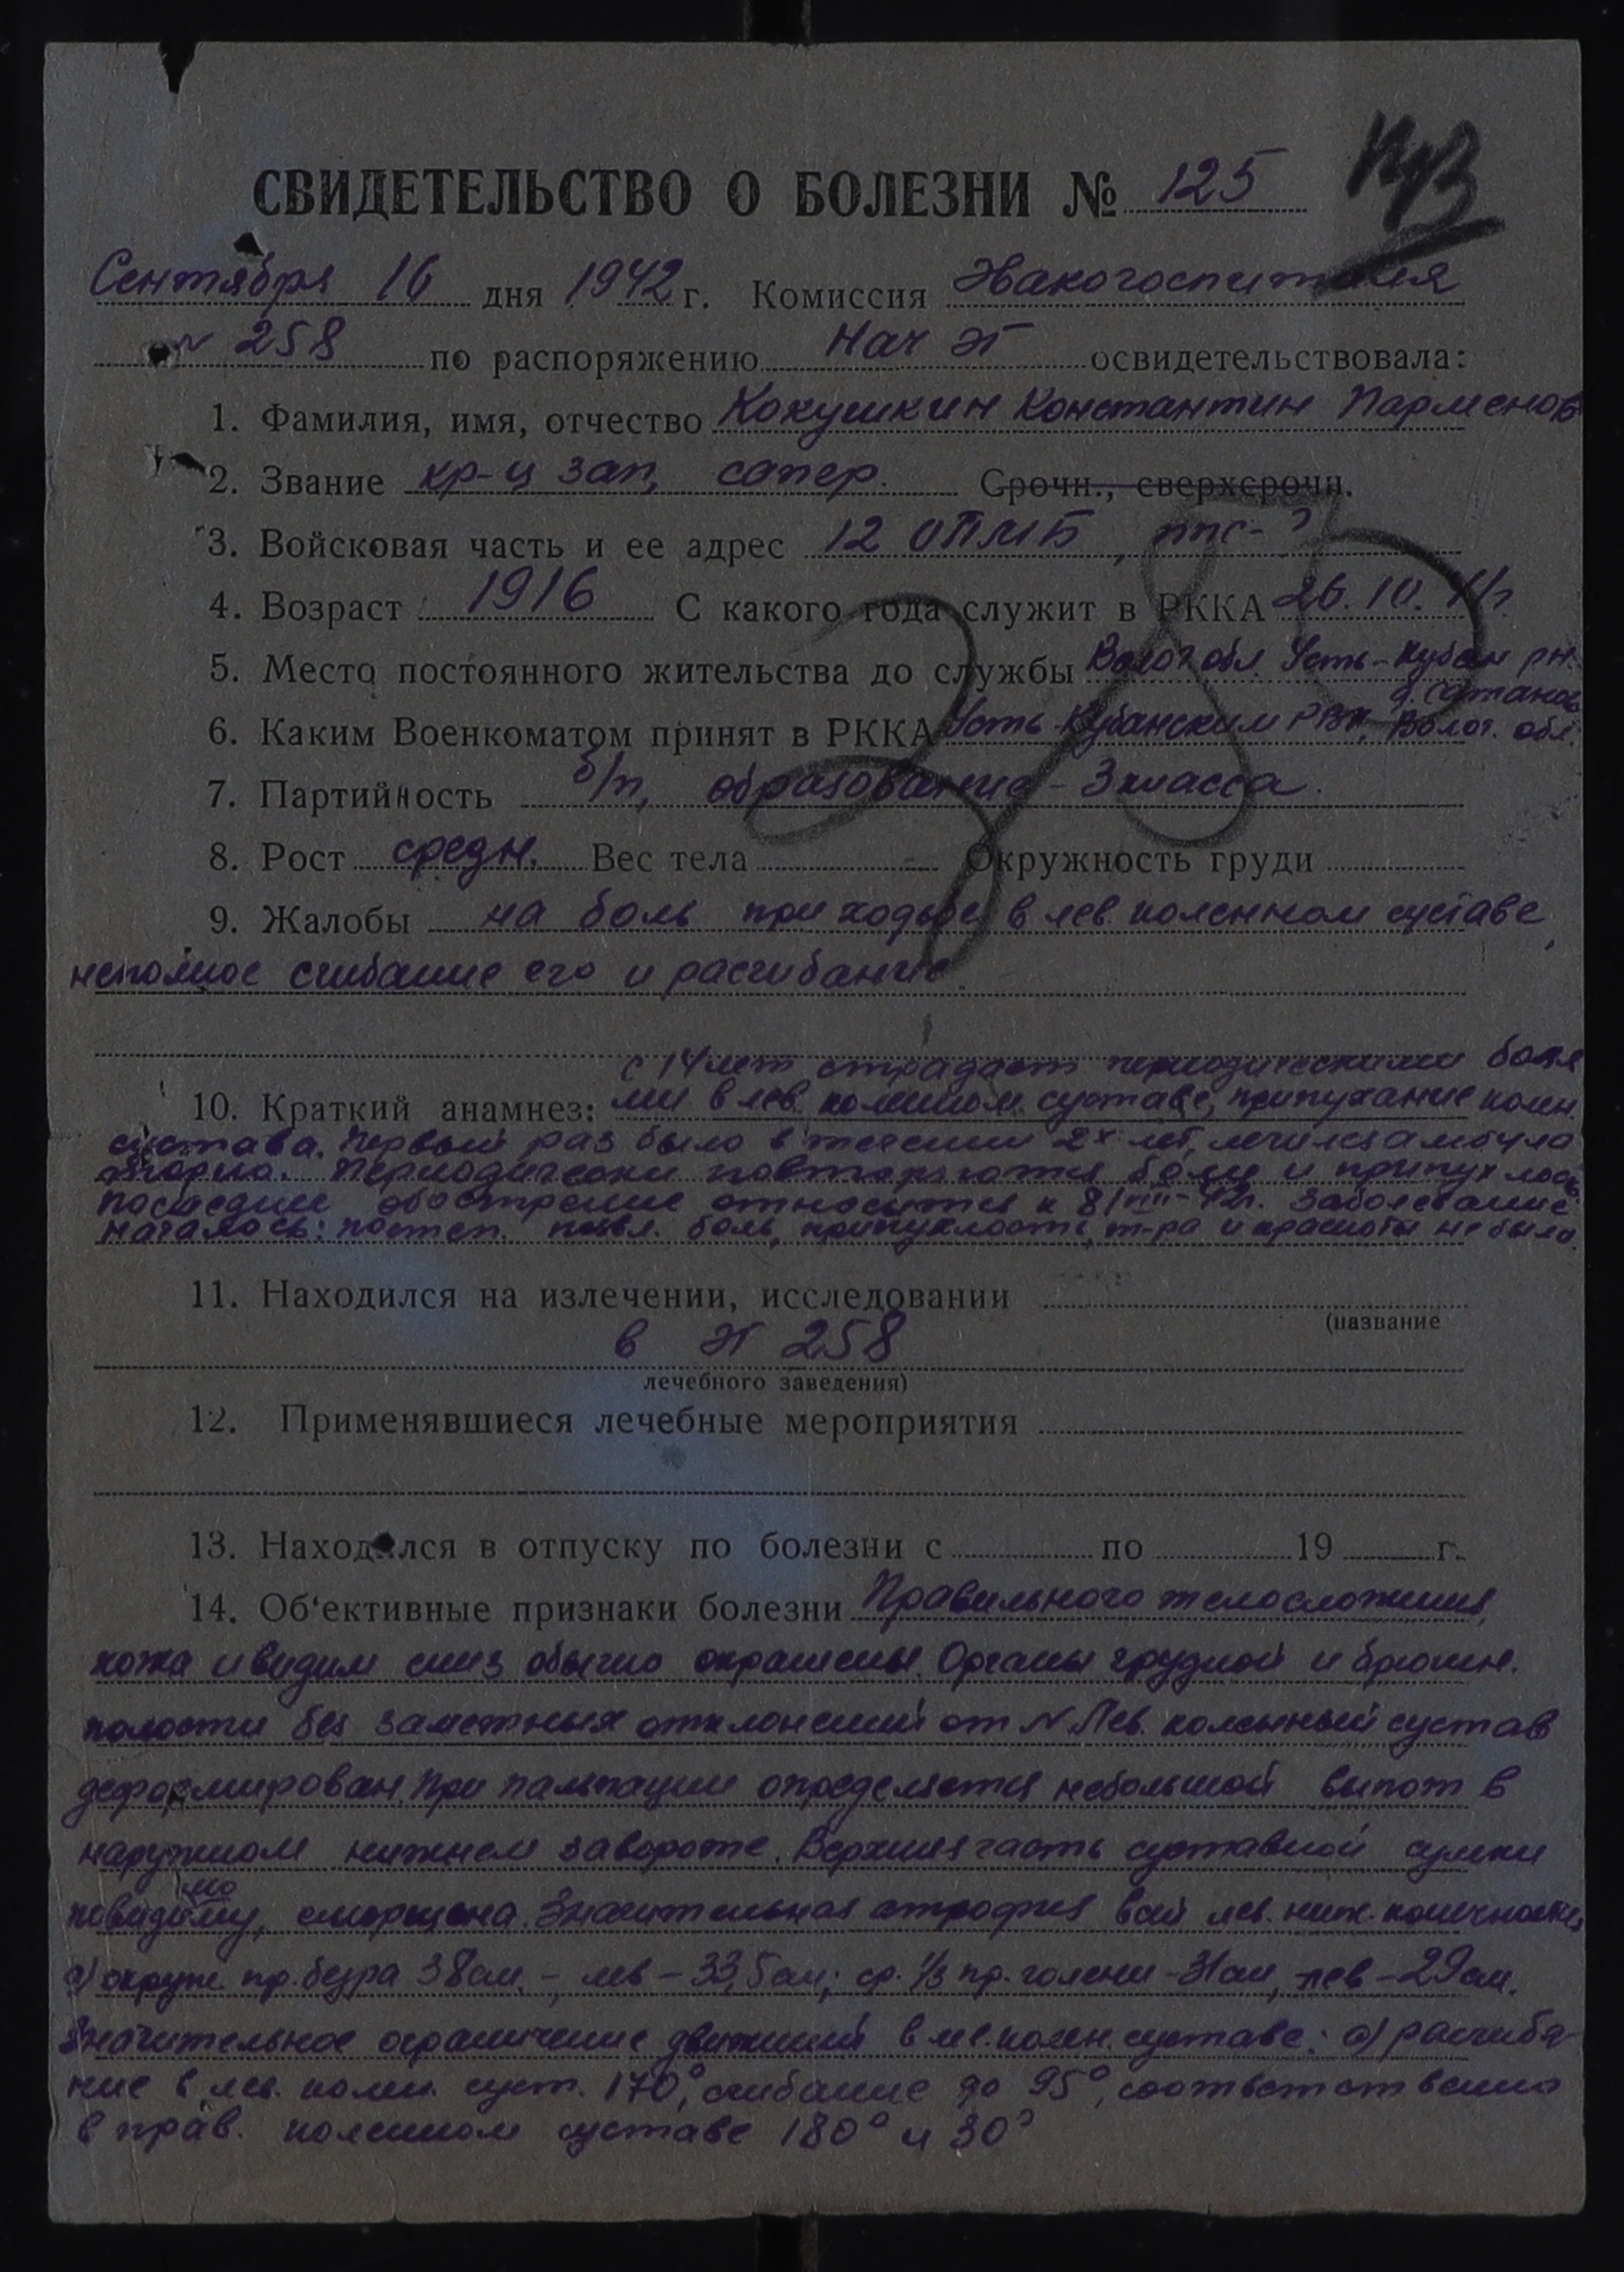 СВИДЕТЕЛЬСТВО О БОЛЕЗНИ № 125
Сентября 16 дня 1942 г. Комиссия Эвакогоспиталя
№ 258 по распоряжению Нач ЭГ освидетельствовала:
1. Фамилия, имя, отчество Кокушкин Константин Парменов
2. Звание кр-ц зап, сапер. Срочн., сверхсрочн.
3. Войсковая часть и ее адрес 12 ОПМБ, ппс-?
4. Возраст 1916 С какого года служит в РККА 26.10.41г
5. Место постоянного жительства до службы Волог обл. Усть-Кубен рн.
6. Каким Военкоматом принят в РККА Усть-Кубанским РВК, Волог. обл.
7. Партийность б/п, образование - 3 класса.
8. Рост средн. Вес тела Окружность груди
9. Жалобы на боль при ходьбе в лев. коленном суставе,
неполное сгибание его и разгибание.
с 14 лет страдает периодическими боля
10. Краткий анамнез: ми в лев. коленном суставе, припухание колен.
сустава. Первый раз было в течении 2х лет, лечился амбула
торно. Периодически повторяются боли и припухлость
последнее обострение относится к 8/VIII-42г. Заболевание
началось: постеп. появл. боль, припухлость, т-ра и красноты не было.
11. Находился на излечении, исследовании
(название
в ЭГ 258
лечебного заведения)
12. Применявшиеся лечебные мероприятия
13. Находился в отпуску по болезни с по 19 г.
14. Об'ективные признаки болезни Правильного телосложения,
кожа и видим слиз обычно окрашены. Органы грудной и брюшн.
полости без заметных отклонений от N. Лев. коленный сустав
деформирован. При пальпации определяется небольшой выпот в
наружном нижнем завороте. Верхняя часть суставной сумки
повидимому, сморщена. Значительная атрофия всей лев. ниж. конечности
а) окруж. пр. бедра 38см, - лев - 33,5см; ср. 1/3 пр. голени - 31см, лев - 29см.
Значительное ограничение движений в лев. колен. суставе: а) разгиба
ние в лев. колен. суст. 170°, сгибание до 95°, соответственно
в прав. коленном суставе 180° и 30°